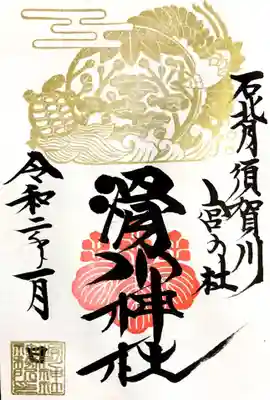 石背須賀川
宮の杜
滑川神社
令和二年一月 日